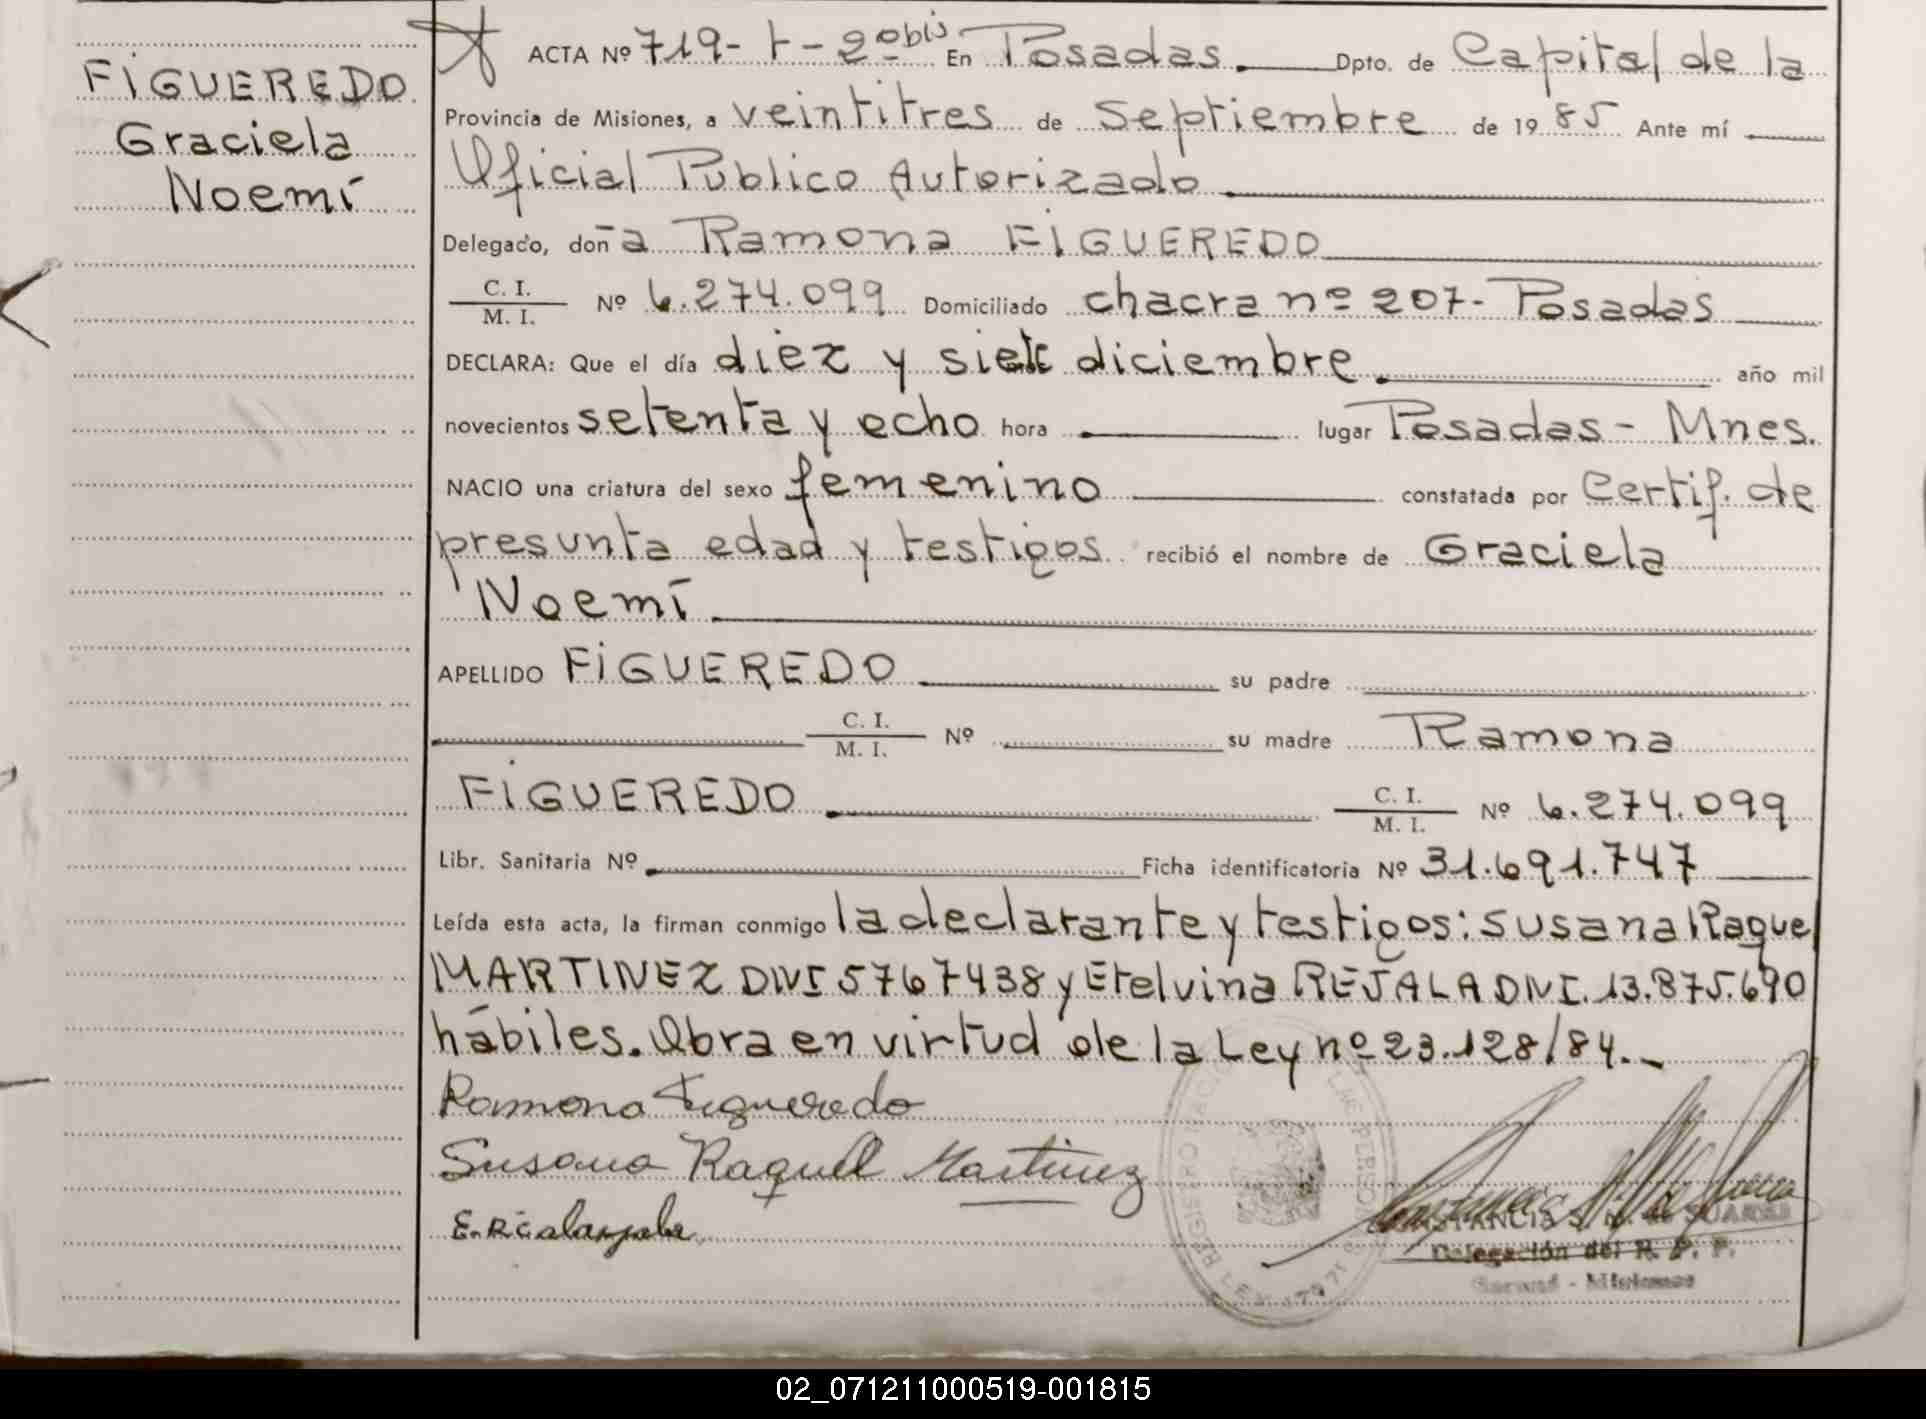 FIGUEREDO
Graciela
Noemí
ACTA Nº 719- t - 2º bis En Posadas. Dpto. de Capital de la
Provincia de Misiones, a veintitres de Septiembre de 1985 Ante mí
Oficial Publico Autorizado
Delegado, doña Ramona FIGUEREDO
C. I. / M. I. Nº 6.274.099 Domiciliado chacra nº 207- Posadas
DECLARA: Que el día diez y siete diciembre. año mil
novecientos setenta y ocho hora lugar Posadas - Mnes.
NACIO una criatura del sexo femenino constatada por Certif. de
presunta edad y testigos recibió el nombre de Graciela
Noemí
APELLIDO FIGUEREDO su padre
C. I. / M. I. Nº su madre Ramona
FIGUEREDO C. I. / M. I. Nº 6.274.099
Libr. Sanitaria Nº Ficha identificatoria Nº 31.691.747
Leída esta acta, la firman conmigo la declarante y testigos: Susana Raquel
MARTINEZ DNI 5767438 y Etelvina REJALA DNI. 13.875.690
hábiles. Obra en virtud de la Ley nº 23.128/84.-
Ramona Figueredo
Susana Raquel Martinez
Delegación del R. P. P.
02_071211000519-001815